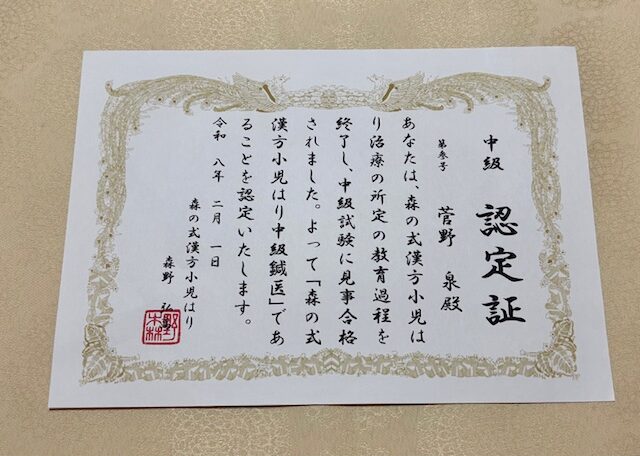 中級 認定証
第参号
菅野 泉殿
あなたは、森の式漢方小児は
り治療の所定の教育過程を
終了し、中級試験に見事合格
されました。よって「森の式
漢方小児はり中級鍼医」であ
ることを認定いたします。
令和 八年 二月 一日
森の式漢方小児はり
森野 弘